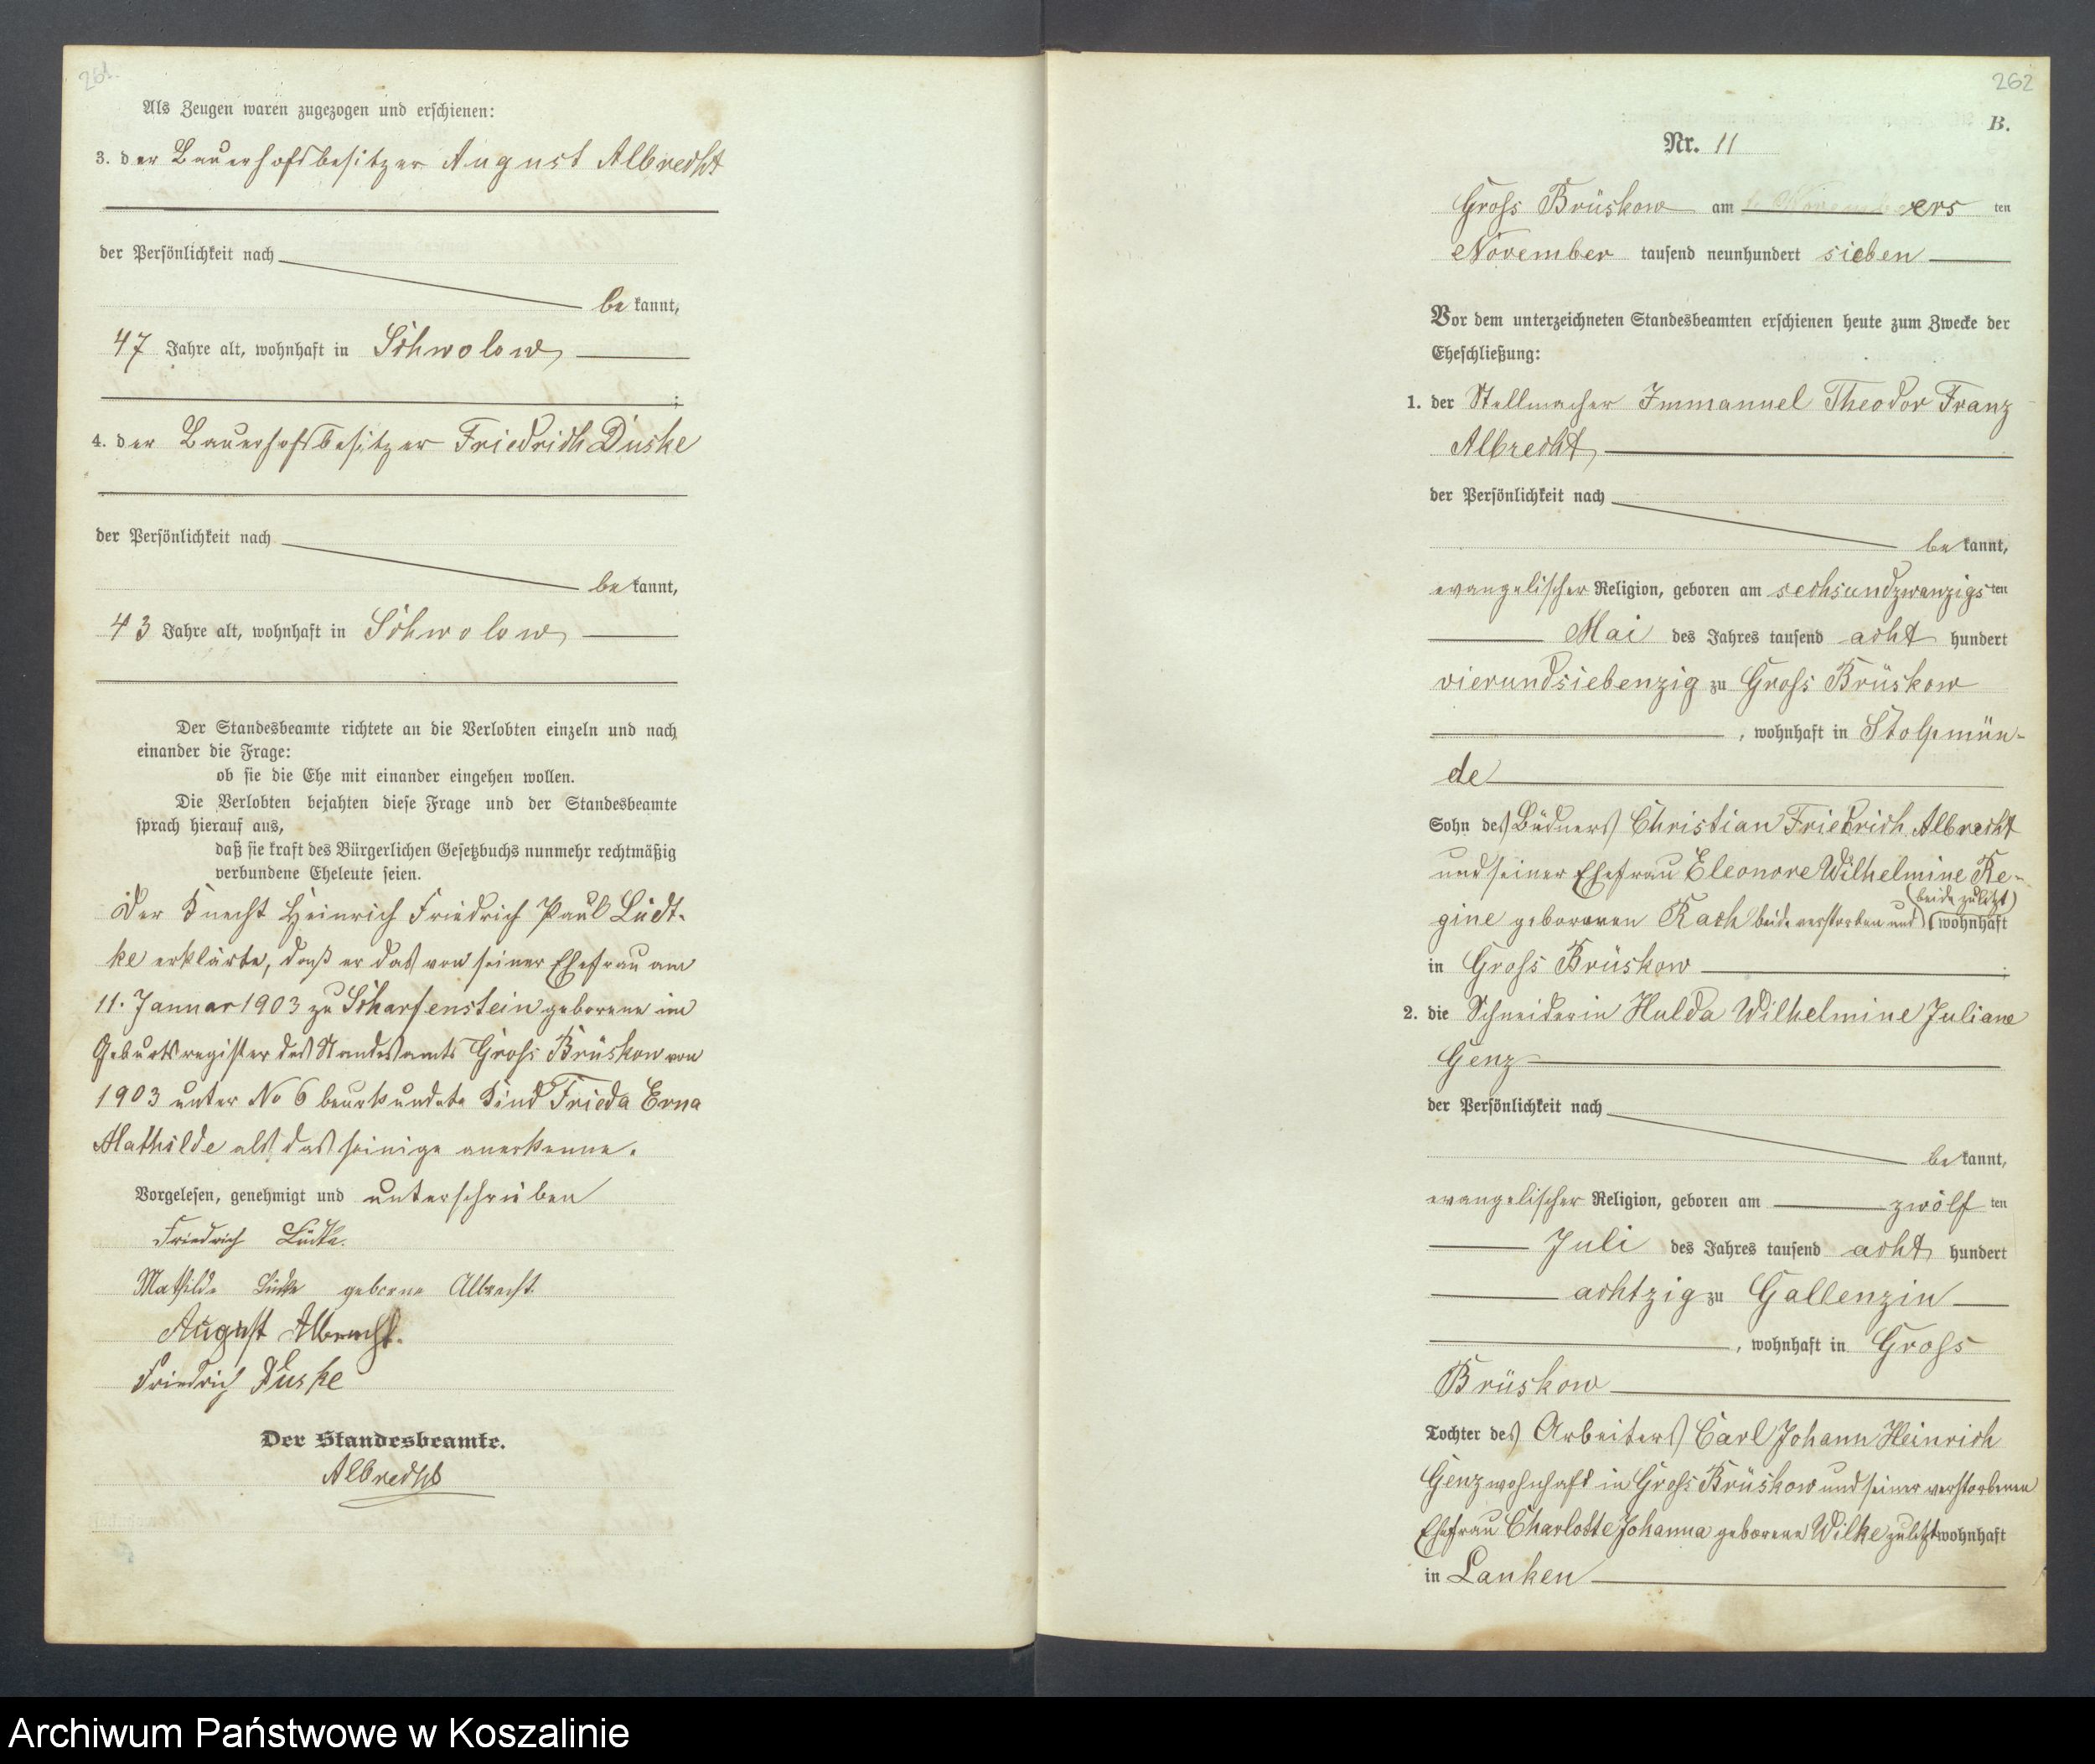 261.
Als Zeugen waren zugezogen und erschienen:
3. der Bauerhofsbesitzer August Albrecht
der Persönlichkeit nach
be kannt,
47 Jahre alt, wohnhaft in Schwolow
;
4. der Bauerhofsbesitzer Friedrich Duske
der Persönlichkeit nach
be kannt,
43 Jahre alt, wohnhaft in Schwolow
Der Standesbeamte richtete an die Verlobten einzeln und nach
einander die Frage:
ob sie die Ehe mit einander eingehen wollen.
Die Verlobten bejahten diese Frage und der Standesbeamte
sprach hierauf aus,
daß sie kraft des Bürgerlichen Gesetzbuchs nunmehr rechtmäßig
verbundene Eheleute seien.
Der Knecht Heinrich Friedrich Paul Lüdt-
ke erklärte, daß er das von seiner Ehefrau am
11. Januar 1903 zu Scharfenstein geborene im
Geburtsregister des Standesamts Gross Brüskow von
1903 unter No 6 beurkundete Kind Frieda Erna
Mathilde als das seinige anerkenne.
Vorgelesen, genehmigt und unterschrieben
Friedrich Lüdtke.
Mathilde Lüdtke geborne Albrecht.
August Albrecht.
Friedrich Duske
Der Standesbeamte.
Albrecht
262
B.
Nr. 11
Gross Brüskow am ers ten
November tausend neunhundert sieben
Vor dem unterzeichneten Standesbeamten erschienen heute zum Zwecke der
Eheschließung:
1. der Stellmacher Immanuel Theodor Franz
Albrecht
der Persönlichkeit nach
be kannt,
evangelischer Religion, geboren am sechsundzwanzigs ten
Mai des Jahres tausend acht hundert
vierundsiebenzig zu Gross Brüskow
, wohnhaft in Stolpmün-
de
Sohn des Büdners Christian Friedrich Albrecht
und seiner Ehefrau Eleonore Wilhelmine Re-
(beide zuletzt)
gine geborenen Rach beide verstorben und wohnhaft
in Gross Brüskow
;
2. die Schneiderin Hulda Wilhelmine Juliane
Genz
der Persönlichkeit nach
be kannt,
evangelischer Religion, geboren am zwölf ten
Juli des Jahres tausend acht hundert
achtzig zu Gallenzin
, wohnhaft in Gross
Brüskow
Tochter des Arbeiters Carl Johann Heinrich
Genz wohnhaft in Gross Brüskow und seiner verstorbenen
Ehefrau Charlotte Johanna geborene Wilke zuletzt wohnhaft
in Lanken
Archiwum Państwowe w Koszalinie